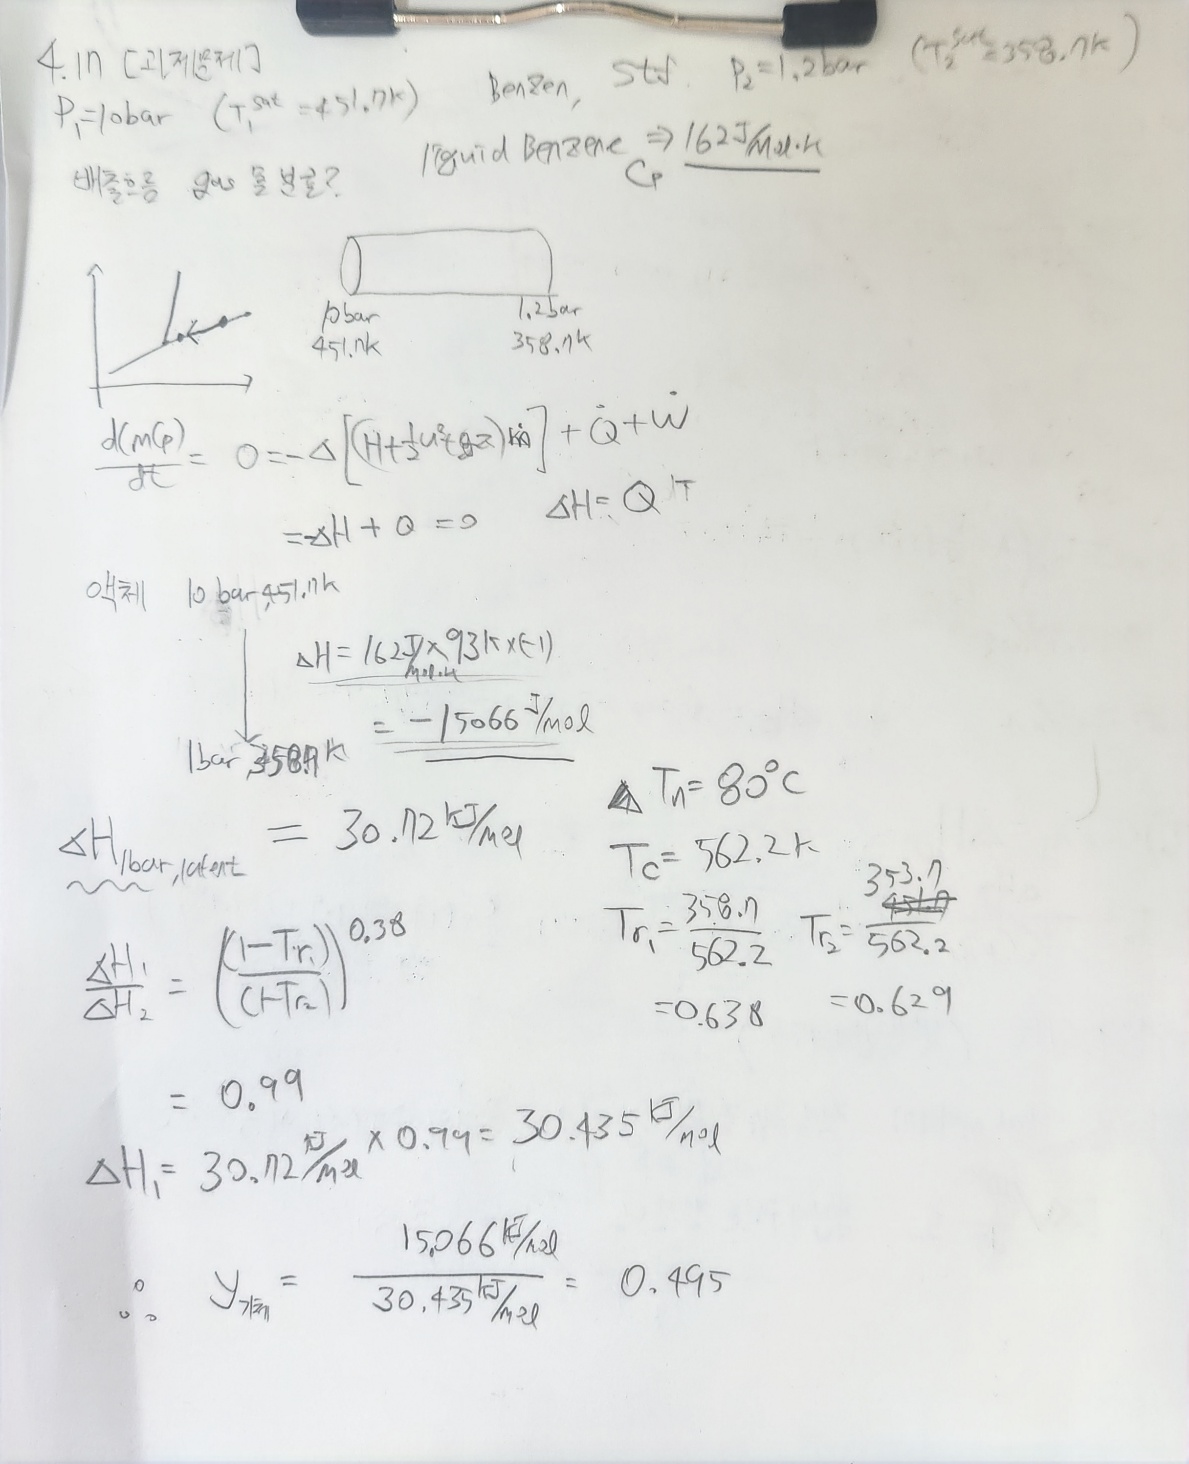 4.17 [과제문제]
Benzen, std. P₂=1.2bar (T₂ˢᵃᵗ=358.7K)
P₁=10bar (T₁ˢᵃᵗ=451.7K)
liquid Benzene Cp ⇒ 162J/mol·K
배출흐름 gas 몰분율?
10bar 1.2bar
451.7K 358.7K
d(mCp)/dt = 0 = -Δ[(H+½u²+gz)ṁ] + Q̇ + Ẇ
= -ΔH + Q = 0 ΔH = Q
액체 10bar, 451.7K
ΔH = 162J/mol·K × 93K × (-1)
= -15066 J/mol
1bar, 358.7K
ΔH1bar, latent = 30.72 kJ/mol
Tn = 80°C
Tc = 562.2K
Tr₁ = 358.7/562.2 Tr₂ = 353.7/562.2
= 0.638 = 0.629
ΔH₁/ΔH₂ = ((1-Tr₁)/(1-Tr₂))^0.38
= 0.99
ΔH₁ = 30.72 kJ/mol × 0.99 = 30.435 kJ/mol
∴ y기체 = 15.066 kJ/mol / 30.435 kJ/mol = 0.495